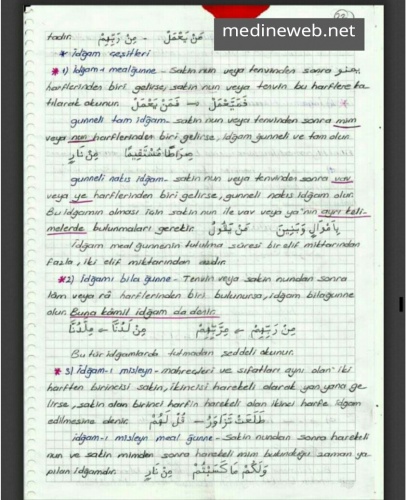 medineweb.net
tadır. مَنْ يَعْمَلْ - مِنْ رَبِّهِمْ
* idğam çeşitleri
* 1) idğam-ı mealğunne - Sakin nun veya tenvinden sonra يمنو
harflerinden biri gelirse, nun veya tenvin bu harflere ka-
tılarak okunur. فَمَيَّعْمَلْ ← فَمَنْ يَعْمَلْ
gunneli tam idğam - sakin nun veya tenvinden sonra mim
veya nun harflerinden biri gelirse, idğam gunneli ve tam olur.
صِرَاطًا مُسْتَقِيمًا مِنْ نَارٍ
gunneli nakıs idğam - sakin nun veya tenvinden sonra vav
veya ye harflerinden biri gelirse, gunneli nakıs idğam olur.
Bu idgamın olması için sakin nun ile vav veya ya'nın ayrı keli-
melerde bulunmaları gerekir. مَنْ يَقُولُ بِأَمْوَالٍ وَبَنِينَ
idğam meal ğunnenin tutulma süresi bir elif miktarından
fazla, iki elif miktarından azdır.
*2) idğamı bila ğunne - Tenvin veya sakin nundan sonra
lâm veya râ harflerinden biri bulunursa, idğam bilağunne
olur. Buna kâmil idğam da denir.
مِنْ لَدُنَّا ← مِلَّدُنَّا مِنْ رَبِّهِمْ ← مِرَّبِّهِمْ
Bu tür idgamlarda tutmadan şeddeli okunur.
* 3) idğam-ı misleyn - mahreçleri ve sıfatları aynı olan iki
harften birincisi sakin, ikincisi harekeli olarak yan yana ge-
lirse, sakin olan birinci harfin harekeli olan ikinci harfe idğam
edilmesine denir. طَلَعَتْ تَزَاوَرُ - قُلْ لَهُمْ
idğam-ı misleyn meal ğunne - Sakin nundan sonra harekeli
nun ve sakin mimden sonra harekeli mim bulunduğu zaman ya-
pılan idgamdır. وَلَكُمْ مَا كَسَبْتُمْ مِنْ نَارٍ